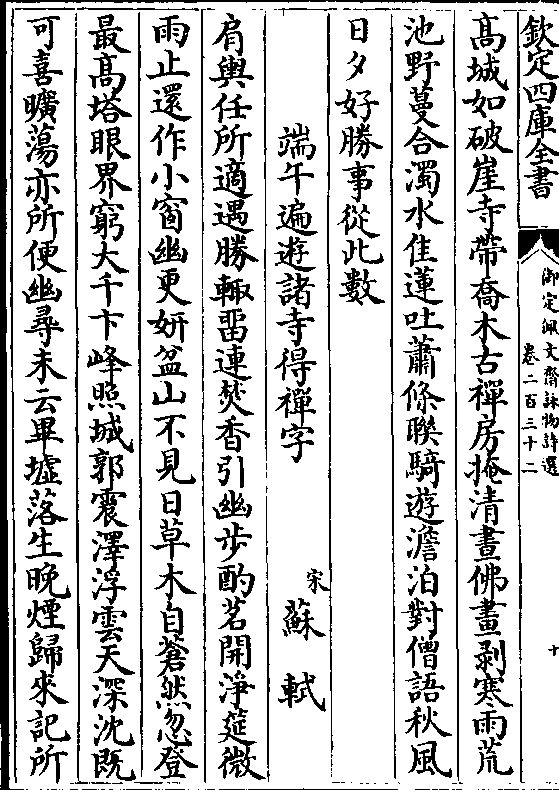 欽定四庫全書
御定佩文齋詠物詩選
卷二百三十二
十
髙城如破崖寺帶喬木古禪房掩清晝佛畫剥寒雨荒
池野蔓合濁水隹蓮吐蕭條聨騎遊澹泊對僧語秋風
日夕好勝事從此數
端午遍遊諸寺得禪字
宋蘇軾
肩輿任所適遇勝輙畱連焚香引幽步酌茗開浄筵微
雨止還作小窗幽更妍盆山不見日草木自蒼然忽登
最髙塔眼界窮大千卞峰照城郭震澤浮雲天深沈既
可喜曠蕩亦所便幽尋未云畢墟落生晚煙歸來記所